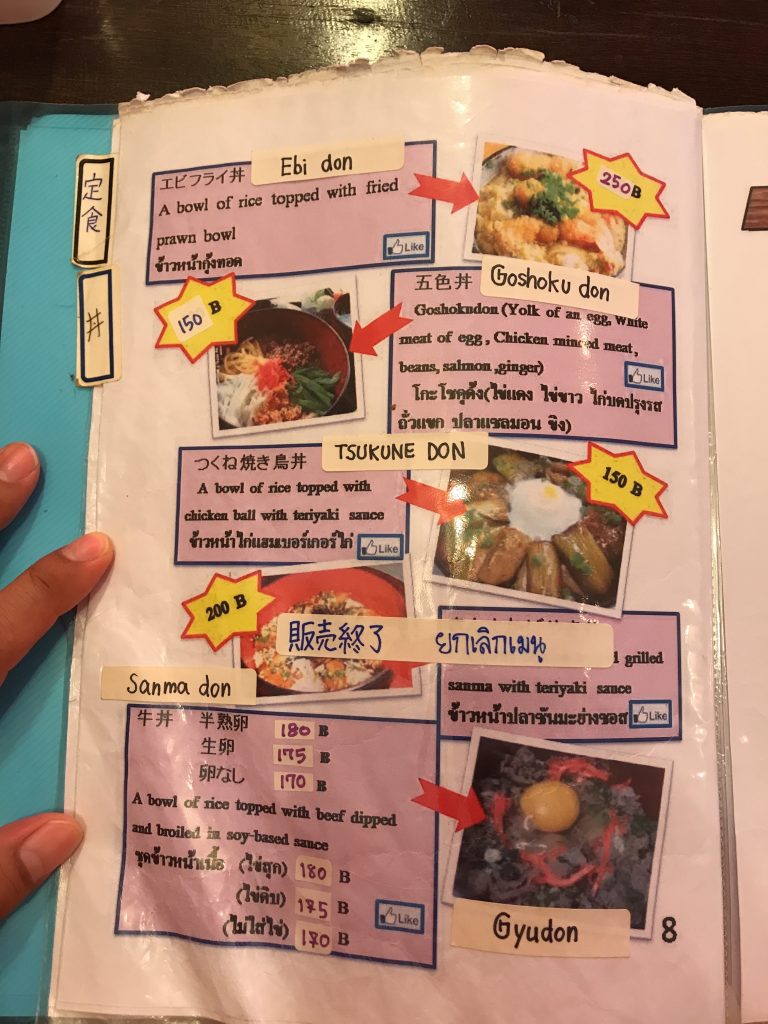 定食
丼
エビフライ丼
Ebi don
A bowl of rice topped with fried
prawn bowl
ข้าวหน้ากุ้งทอด
Like
250B
150 B
五色丼
Goshoku don
Goshokudon (Yolk of an egg, White
meat of egg, Chicken minced meat,
beans, salmon ,ginger)
Like
โกะโชคุด้ง(ไข่แดง ไข่ขาว ไก่บดปรุงรส
ถั่วแขก ปลาแซลมอน ขิง)
TSUKUNE DON
つくね焼き鳥丼
A bowl of rice topped with
chicken ball with teriyaki sauce
ข้าวหน้าไก่แฮมเบอร์เกอร์ไก่
Like
150 B
200 B
販売終了 ยกเลิกเมนู
grilled
sanma with teriyaki sauce
ข้าวหน้าปลาซันมะย่างซอส
Like
Sanma don
牛丼 半熟卵 180 B
生卵 175 B
卵なし 170 B
A bowl of rice topped with beef dipped
and broiled in soy-based sauce
ชุดข้าวหน้าเนื้อ (ไข่สุก) 180 B
(ไข่ดิบ) 175 B
(ไม่ใส่ไข่) 170 B
Like
Gyudon
8